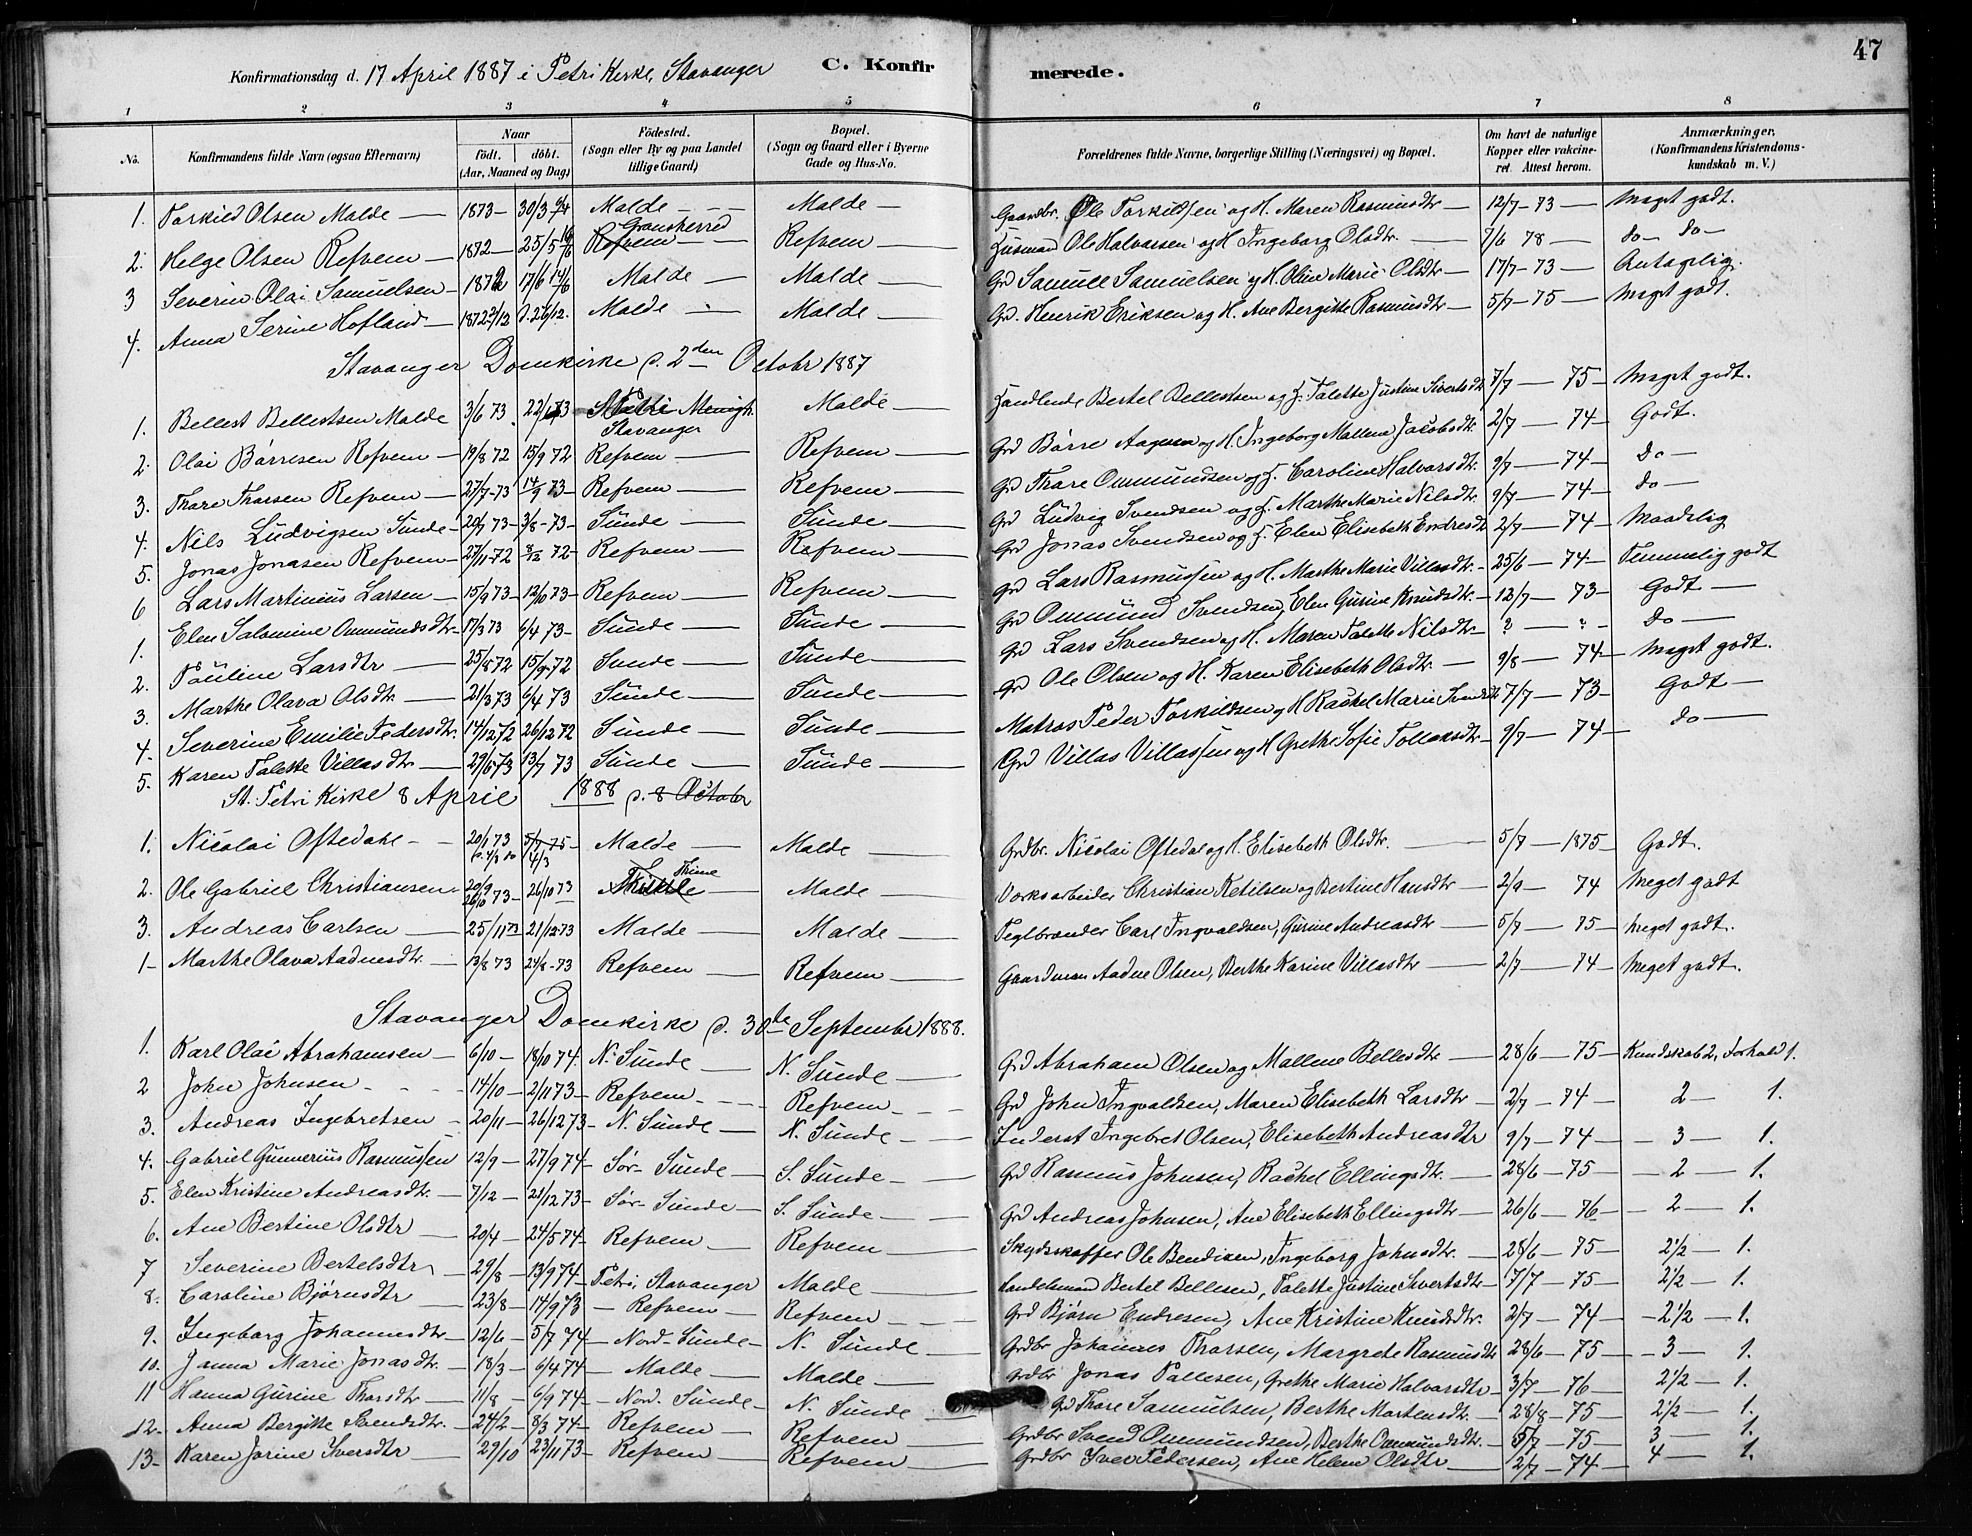 47
Konfirmationsdag d. 17 April 1887 i Petri Kirke, Stavanger C. Konfirmerede.
1 2 3 4 5 6 7 8
No. Konfirmandens fulde Navn (ogsaa Efternavn) Naar födt. döbt. (Aar, Maaned og Dag) Födested. (Sogn eller By og paa Landet tillige Gaard) Bopæl. (Sogn og Gaard eller i Byerne Gade og Hus-No. Forældrenes fulde Navne, borgerlige Stilling (Næringsvei) og Bopæl. Om havt de naturlige Kopper eller vakcineret. Attest herom. Anmærkninger. (Konfirmandens Kristendomskundskab m. V.)
1. Torkild Olsen Malde — 1873 — 30/3 Malde — Malde — Gaardbr. Ole Torkildsen og H. Maren Rasmusdtr — 12/7 - 73 — Meget godt.
2. Helge Olsen Refvem — 1872 — 25/5 16/6 Refvem Gransherred — Refvem — Husmand Ole Halvorsen og H. Ingeborg Olsdtr. — 7/6 78 — do — do —
3 Severin Olai Samuelsen — 1872 17/6 14/6 Malde — Malde — Grd Samuel Samuelsen og H. Oline Marie Olsdtr — 17/7 - 73 — Antagelig.
4. Anna Serine Hofland — 1872 2/12 d. 26/12. Malde — Malde — Grd. Henrik Eriksen og H. Ane Bergitte Rasmusdtr — 5/7 - 75 — Meget godt.
Stavanger Domkirke d. 2den Octobr 1887
1. Bellest Bellestsen Malde 3/6 73. 22/6 73 St Petri Menigh. Stavanger Malde — Handlende Bertel Bellestsen og H. Talette Justine Sivertsdtr 7/7 — 75 — Meget godt.
2. Olai Børresen Refvem — 19/8 72 15/9 72 Refvem — Refvem — Grd Børre Aagesen og H. Ingeborg Mallena Jacobsdtr. 2/7 — 74 Godt.
3. Thore Thorsen Refvem — 27/7 - 73 14/9 73 — Refvem — Refvem — Grd Thore Ommundsen og H. Caroline Halvorsdtr. 9/7 — 74 — do —
4. Nils Ludvigsen Sunde — 20/7 73 — 3/8 - 73 — Sunde — Sunde — Grd Ludvig Svendsen og H. Marthe Marie Nilsdtr 9/7 — 74 — do —
5. Jonas Jonasen Refvem — 27/11 - 72 8/12 72 — Refvem — Refvem — Grd Jonas Svendsen og H. Elen Elisebeth Endresdtr 2/7 — 74 — Maadelig
6 Lars Martinius Larsen — 15/9 73 — 12/10 73 — Refvem — Refvem — Grd Lars Rasmussen og H. Marthe Marie Villasdtr. — 25/6 — 74 — Temmelig godt
1. Elen Salomine Ommundsdtr — 17/3 73 6/4 73 — Sunde — Sunde — Grd Ommund Svendsen, Elen Gurine Knudsdtr. — 12/7 — 73 — Godt —
2. Pauline Larsdtr — 25/8 72 15/9 - 72 Sunde — Sunde — Grd Lars Svendsen og H. Maren Talette Nilsdtr — ? — " — do —
3. Marthe Olava Olsdtr. — 21/3 73 6/4 73 Sunde — Sunde — Grd Ole Olsen og H. Karen Elisebeth Olsdtr. — 9/8 — 74 — Meget godt.
4. Severine Emilie Pedersdtr. 14/12 72 26/12 72 Sunde — Sunde — Matros Peder Torkildsen og H Rachel Marie Svendsdtr 7/7 — 73 — Godt —
5. Karen Talette Villasdtr — 29/6 73 13/7 73 Sunde — Sunde — Grd Villas Villassen og H Grethe Sofie Tollaksdtr — 9/7 — 74 — do —
St. Petri Kirke 8 April 1888 d. 8 October
1. Nicolai Oftedahl — 20/1 73 5/7 75 — 4/3 Malde — Malde — Grdbr. Nicolai Oftedal og H. Elisebeth Olsdtr. — 5/7 — 1875 — Godt.
2. Ole Gabriel Christiansen 20/9 26/10 73 — 26/10 73 Thime — Malde — Værksarbeider Christian Ketilsen og Bertine Hansdtr — 2/9 — 74 Meget godt
3. Andreas Carlsen — 25/11 73 — 21/12 - 73 Malde — Malde — Teglbrænder Carl Ingvaldsen, Gurine Andreasdtr — 5/7 — 75 — Meget godt.
1 - Marthe Olava Aadnesdtr. — 13/8 73 24/8 - 73 Refvem — Refvem — Gaardman Aadne Olsen, Berthe Karine Villasdtr — 2/7 — 74 — Meget godt.
Stavanger Domkirke d. 30te Septembr 1888.
1. Karl Olai Abrahamsen — 6/10 — 18/10 74. N. Sunde — N. Sunde — Grd Abraham Olsen og Mallene Bellesdtr — 28/6 — 75 — Kundskab 2, Forhold 1.
2 John Johnsen — 14/10 — 2/11 73 — Refvem — Refvem — Grd John Ingvaldsen, Maren Elisebeth Larsdtr — 2/7 — 74 — 2 — 1.
3. Andreas Ingebretsen — 20/11 — 26/12 73 — N. Sunde — N. Sunde — Inderst Ingebret Olsen, Elisebeth Andreasdtr 9/7 — 74 — 3 — 1.
4. Gabriel Gunnerius Rasmussen 12/9 — 27/9 74 — Sør - Sunde — S. Sunde — Grd Rasmus Johnsen, Rachel Ellingsdtr. — 28/6 — 75 — 2 — 1.
5. Elen Kristine Andreasdtr. — 7/12 — 21/12 73 — Sør - Sunde — S. Sunde — Grd Andreas Johnsen, Ane Elisebeth Ellingsdtr — 26/6 — 76 — 2 — 1.
6. Ane Bertine Olsdtr — 20/4 — 24/5 74 — Refvem — Refvem — Skydsskaffer Ole Bendixen, Ingeborg Johnsdtr. — 28/6 — 75 — 2 1/2 — 1.
7 Severine Bertelsdtr — 29/8 — 13/9 74 — Petri Stavanger Malde — Handelsmand Bertel Bellesen, Talette Justine Sivertsdtr — 7/7 — 75 — 2 1/2 — 1.
8. Caroline Bjørnsdtr — 23/8 — 14/9 73 — Refvem — Refvem — Grd Bjørn Endresen, Ane Kristine Knudsdtr. — 2/7 — 74 — 2 1/2 — 1.
9. Ingeborg Johannesdtr — 12/6 — 5/7 74 — Nord - Sunde — N. Sunde — Grdbr Johannes Thorsen, Margrete Rasmusdtr 28/6 — 75 — 3 — 1.
10. Janna Marie Jonasdtr. — 18/3 — 6/4 74 — Malde — Malde — Grdbr Jonas Pallesen, Grethe Marie Halvorsdtr — 3/7 — 76 — 2 1/2 — 1.
11 Hanna Gurine Thorsdtr — 11/8 — 6/9 74 — Nord. Sunde — N. Sunde — Grd Thore Samuelsen, Berthe Mortensdtr. — 28/8 — 75 — 2 1/2 — 1.
12 - Anna Bergitte Svendsdtr. — 24/2 — 8/3 74 — Refvem — Refvem — Grdbr Svend Ommundsen, Berthe Ommundsdtr. — 5/7 — 75 — 3 — 1.
13 - Karen Jorine Iversdtr 29/10 23/11 73 — Refvem — Refvem — Grdbr Iver Pedersen, Ane Helene Olsdtr — 2/7 — 74 — 4 — 1.